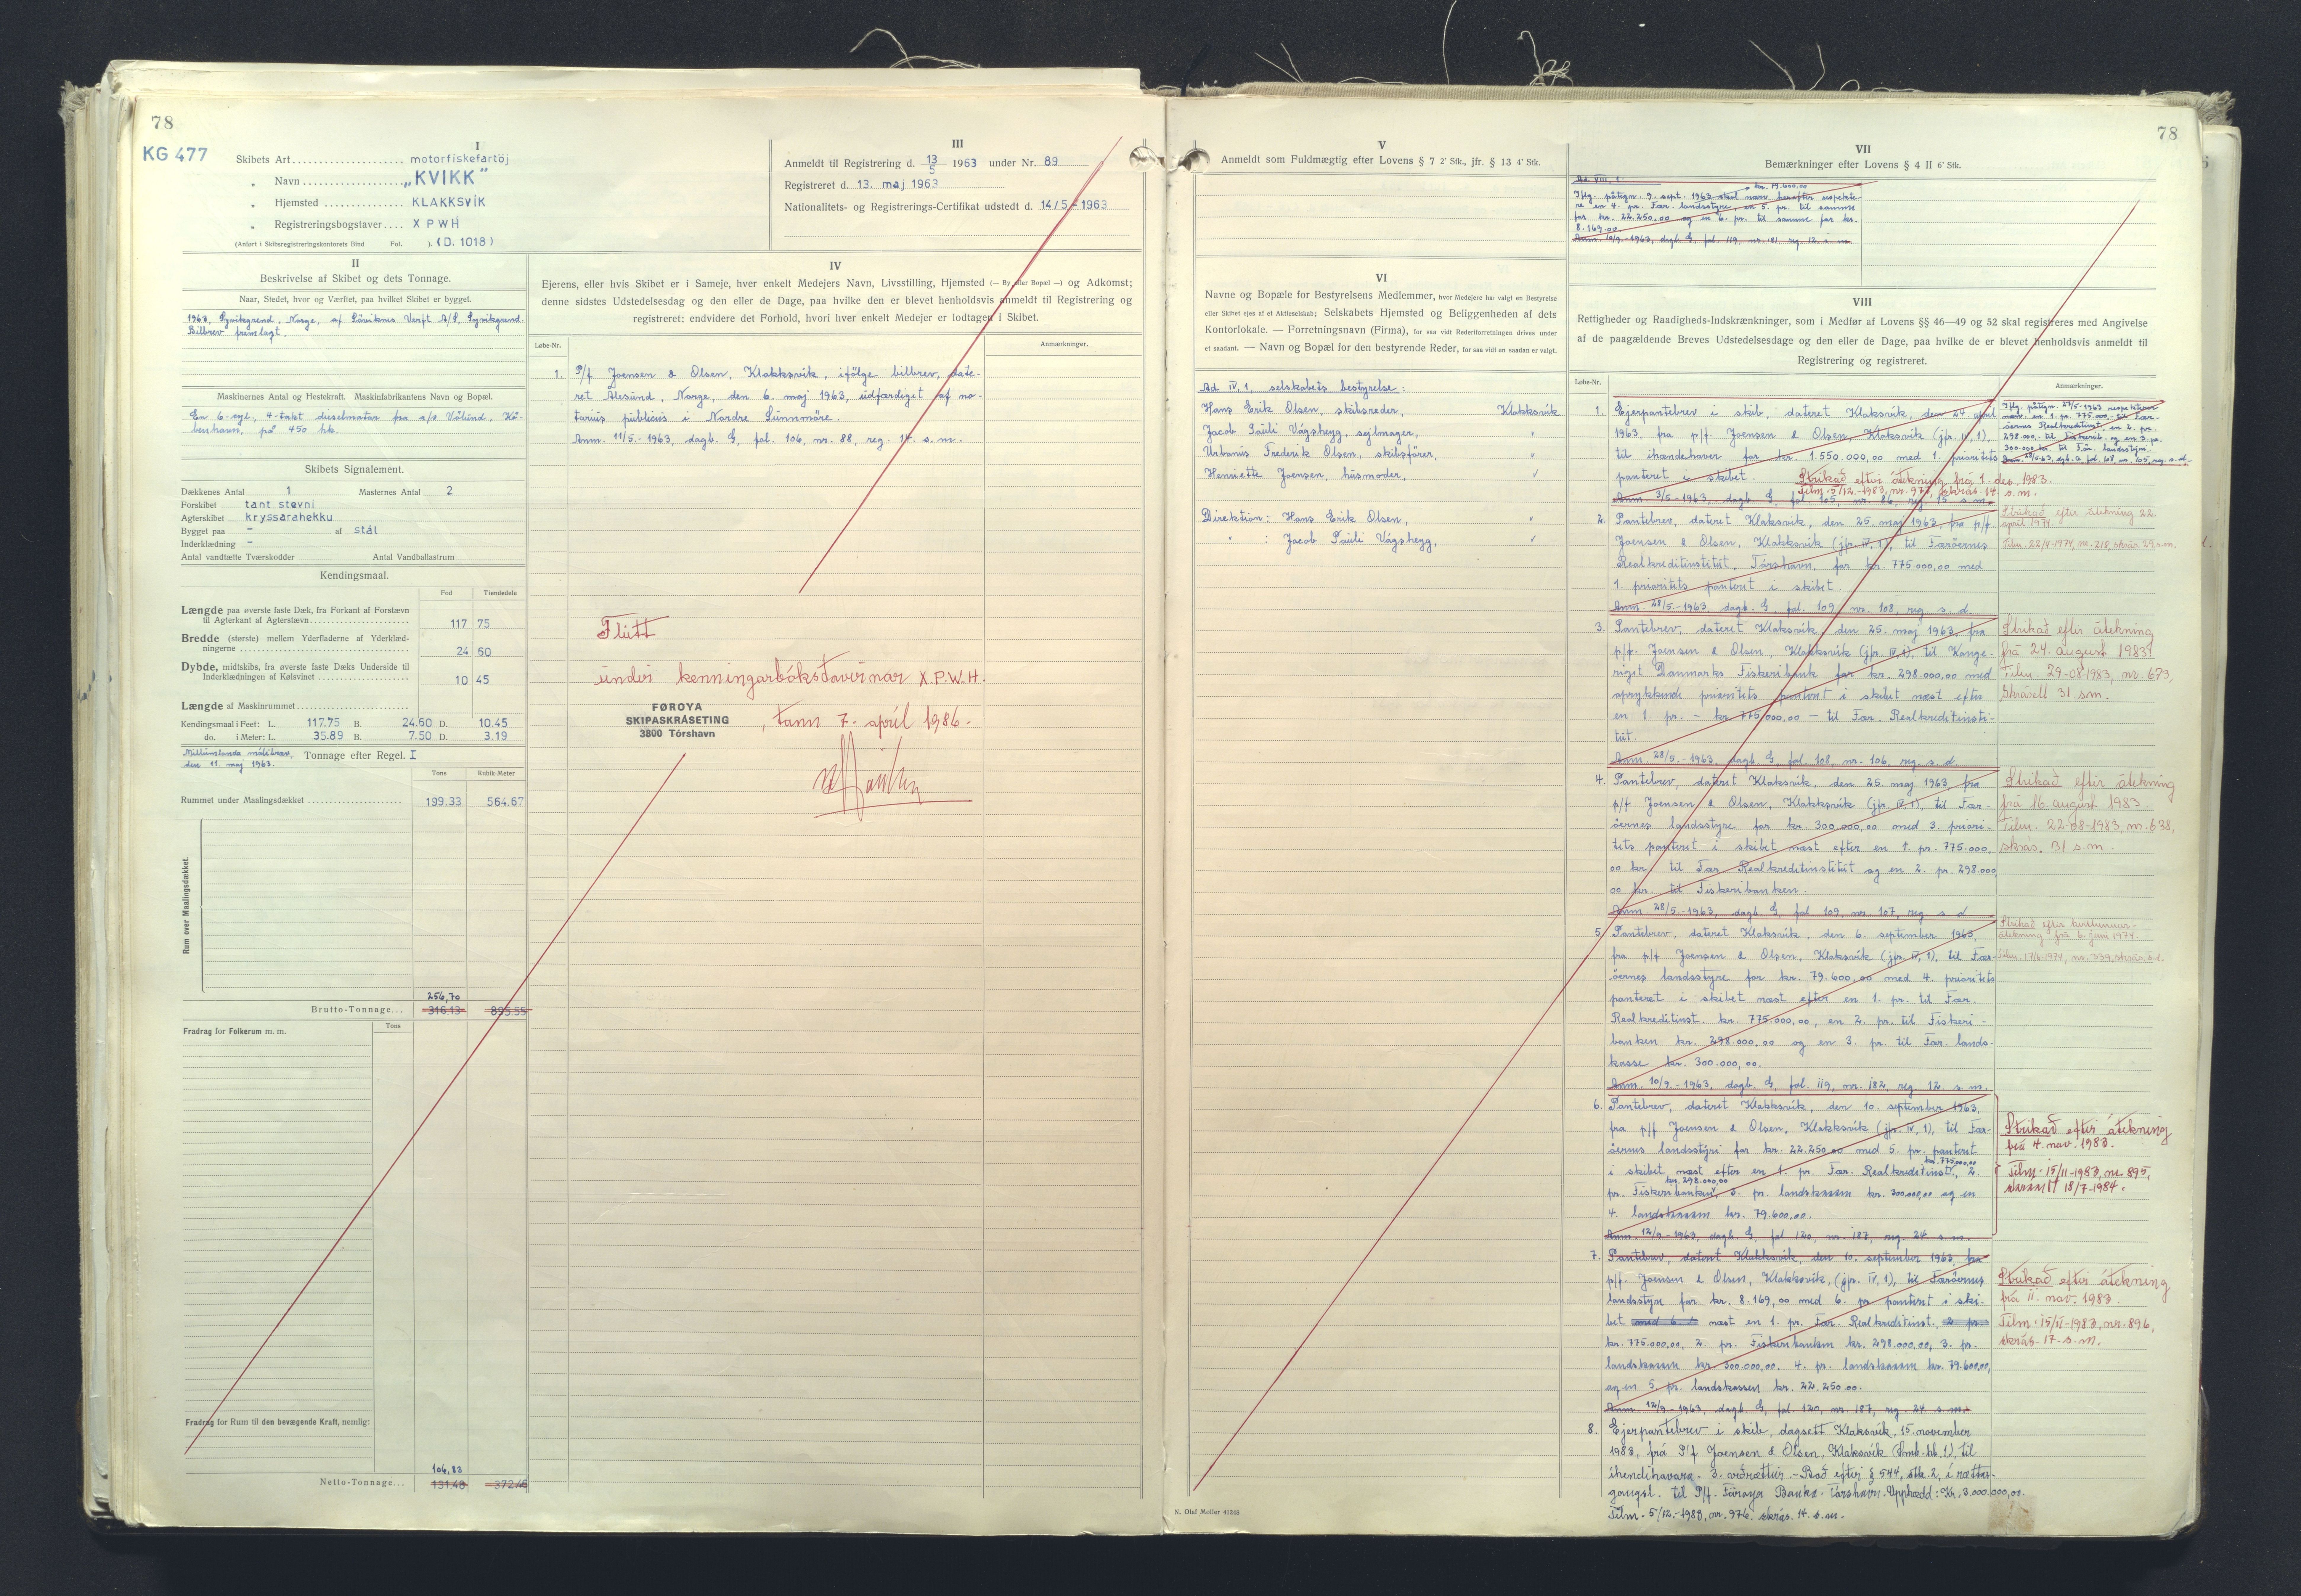 78
KG 477
I
Skibets Art.................... motorfiskefartöj
„ Navn................... „KVIKK"
„ Hjemsted .............. KLAKKSVÍK
„ Registreringsbogstaver.... XPWH
(Anført i Skibsregistreringskontorets Bind Fol. ). (D. 1018)
III
Anmeldt til Registrering d. 13/5 1963 under Nr. 89
Registreret d. 13. maj 1963
Nationalitets- og Registrerings-Certifikat udstedt d. 14/5 - 1963
II
Beskrivelse af Skibet og dets Tonnage.
Naar, Stedet, hvor og Værftet, paa hvilket Skibet er bygget.
1963, Syvikgrend, Norge, af Löviknes Verft A/S, Syvikgrend.
Bilbrev fremlagt.
Maskinernes Antal og Hestekraft. Maskinfabrikantens Navn og Bopæl.
En 6-cyl., 4-takt dieselmotor fra a/s Völund, Kö-
benhavn, på 450 hk.
Skibets Signalement.
Dækkenes Antal 1 Masternes Antal 2
Forskibet tant stevni
Agterskibet kryssarahekku
Bygget paa - af stál
Inderklædning -
Antal vandtætte Tværskodder Antal Vandballastrum
Kendingsmaal.
Fod Tiendedele
Længde paa øverste faste Dæk, fra Forkant af Forstævn
til Agterkant af Agterstævn 117 75
Bredde (største) mellem Yderfladerne af Yderklæd-
ningerne 24 60
Dybde, midtskibs, fra øverste faste Dæks Underside til
Inderklædningen af Kølsvinet 10 45
Længde af Maskinrummet
Kendingsmaal i Feet: L. 117.75 B. 24.60 D. 10.45
do. i Meter: L. 35.89 B. 7.50 D. 3.19
Millumlanda málibrøv,
den 11. maj 1963. Tonnage efter Regel. I
Tons Kubik-Meter
Rummet under Maalingsdækket 199.33 564.67
Rum over Maalingsdækket.
256,70
Brutto-Tonnage... 316.13 895.55
Fradrag for Folkerum m. m. Tons
Fradrag for Rum til den bevægende Kraft, nemlig:
106,82
Netto-Tonnage... 131.48 372.46
IV
Ejerens, eller hvis Skibet er i Sameje, hver enkelt Medejers Navn, Livsstilling, Hjemsted (— By eller Bopæl —) og Adkomst;
denne sidstes Udstedelsesdag og den eller de Dage, paa hvilke den er blevet henholdsvis anmeldt til Registrering og
registreret: endvidere det Forhold, hvori hver enkelt Medejer er lodtagen i Skibet.
Løbe-Nr. Anmærkninger.
1. P/f Joensen & Olsen, Klakksvík, ifölge bilbrev, date-
ret Ålesund, Norge, den 6. maj 1963, udfærdiget af no-
tarius publicus i Nordre Sunnmöre.
Anm. 11/5.-1963, dagb. G, fol. 106, nr. 88, reg. 14. s. m.
Flutt
undir kenningarbókstavirnar X.P.W.H.
FØROYA
SKIPASKRÁSETING
3800 Tórshavn
, tann 7. apríl 1986.
78
V
Anmeldt som Fuldmægtig efter Lovens § 7 2' Stk., jfr. § 13 4' Stk.
VI
Navne og Bopæle for Bestyrelsens Medlemmer, hvor Medejere har valgt en Bestyrelse
eller Skibet ejes af et Aktieselskab; Selskabets Hjemsted og Beliggenheden af dets
Kontorlokale. — Forretningsnavn (Firma), for saa vidt Rederiforretningen drives under
et saadant. — Navn og Bopæl for den bestyrende Reder, for saa vidt en saadan er valgt.
Ad IV, 1, selskabets bestyrelse:
Hans Erik Olsen, skibsreder, Klakksvík
Jacob Pauli Vágsheyg, sejlmager, "
Urbanus Frederik Olsen, skibsförer, "
Henriette Joensen, husmoder, "
Direktion: Hans Erik Olsen, "
" : Jacob Pauli Vágsheyg, "
N. Olaf Møller 41248
VII
Bemærkninger efter Lovens § 4 II 6' Stk.
Ad VIII, 1.
kr. 79.600,00
Iflg. påtegn. 9. sept. 1963 skal nærv. herefter respekte-
re en 4. pr. Fær. landsstyre, en 5. pr. til samme
for kr. 22.250.00 og en 6. pr. til samme for kr.
8.169.00.
Anm. 10/9.-1963, dagb. G, fol. 119, nr. 181, reg. 12. s. m.
VIII
Rettigheder og Raadigheds-Indskrænkninger, som i Medfør af Lovens §§ 46—49 og 52 skal registreres med Angivelse
af de paagældende Breves Udstedelsesdage og den eller de Dage, paa hvilke de er blevet henholdsvis anmeldt til
Registrering og registreret.
Løbe-Nr. Anmærkninger.
1. Ejerpantebrev i skib, dateret Klaksvík, den 24. april
1963, fra p/f. Joensen & Olsen, Klaksvík (jfr. IV, 1),
til ihændehaver for kr. 1.550.000,00 med 1. prioritets
panteret i skibet.
Anm. 3/5-1963, dagb. G, fol. 105, nr. 86, reg. 15 s. m.
Iflg. påtegn. 27/5-1963 respekterer
nærv. en 1. pr. 775.000,- til Fær-
öernes Realkreditinst., en 2. pr.
298.000.- til Fiskerib. og en 3. pr.
300.000 kr. til Fær. landsstyri.
Strikað eftir átekning frá 1. des. 1983.
Tilm. 5/12.-1983, nr. 977, skrás. 14 s. m.
2. Pantebrev, dateret Klaksvík, den 25. maj 1963, fra p/f
Joensen & Olsen, Klakksvík (jfr. IV, 1), til Færöernes
Realkreditinstitut, Tórshavn, for kr. 775.000,00 med
1. prioritets panteret i skibet.
Anm. 28/5.-1963, dagb. G, fol. 109, nr. 108, reg. s. d.
Strikað eftir átekning 22.
apríl 1974.
Tilm. 22/4-1974, nr. 218, skrás. 29 s.m.
3. Pantebrev, dateret Klaksvík, den 25. maj 1963, fra
p/f. Joensen & Olsen, Klakksvík (jfr. IV, 1), til Konge-
riget Danmarks Fiskeribank for kr. 298.000,00 med
oprykkende prioritets panteret i skibet næst efter
en 1. pr. - kr. 775.000,00 - til Fær. Realkreditinsti-
tut.
Anm. 28/5.-1963, dagb. G, fol. 108, nr. 106, reg. s. d.
Strikað eftir átekning
frá 24. august 1983.
Tilm. 29-08-1983, nr. 673,
Skrásett 31 sm.
4. Pantebrev, dateret Klaksvík, den 25. maj 1963, fra
p/f Joensen & Olsen, Klakksvík (jfr. IV, 1), til Fær-
öernes landsstyre for kr. 300.000,00 med 3. priori-
tets panteret i skibet næst efter en 1. pr. 775.000,
00 kr. til Fær. Realkreditinstitut og en 2. pr. 298.000
00 kr. til Fiskeribanken.
Anm. 28/5.-1963, dagb. G, fol. 109, nr. 107, reg. s. d.
Strikað eftir átekning
frá 16. august 1983.
Tilm. 22-08-1983, nr. 638,
skrás. 31 s.m.
5. Pantebrev, dateret Klaksvík, den 6. september 1963,
fra p/f Joensen & Olsen, Klakksvík (jfr. IV, 1), til Fær-
öernes landsstyre for kr. 79.600,00 med 4. prioritets
panteret i skibet næst efter en 1. pr. til Fær.
Realkreditinst. kr. 775.000,00, en 2. pr. til Fiskeri-
banken kr. 298.000,00 og en 3. pr. til Fær. lands-
kasse kr. 300.000,00.
Anm. 10/9.-1963, dagb. G, fol. 119, nr. 182, reg. 12 s. m.
Strikað eftir
átekning frá 6. juni 1974.
Tilm. 17/6-1974, nr. 339, skrás. s.d.
6. Pantebrev, dateret Klakksvík, den 10. september 1963,
fra p/f Joensen & Olsen, Klakksvík (jfr. IV, 1), til Fær-
öernes landsstýri for kr. 22.250.00 med 5. pr. panteret
i skibet næst efter en 1. pr. Fær. Realkreditinst. kr. 775.000,00, 2.
pr. Fiskeribanken kr. 298.000,00, 3. pr. landskassen kr. 300.000,00 og en
4. landskassen kr. 79.600,00.
Anm. 12/9-1963, dagb. G, fol 120, nr. 187, reg. 24 s. m.
Strikað eftir átekning
frá 4. nov. 1983.
Tilm. 15/11-1983, nr. 895,
18/7-1984.
7. Pantebrev, dateret Klakksvík, den 10. september 1963, fra
p/f. Joensen & Olsen, Klakksvík, (jfr. IV, 1), til Færöernes
landsstyre for kr. 8.169,00 med 6. pr. panteret i ski-
bet med 6. næst en 1. pr. Fær. Realkreditinst., 2 pr.
kr. 775.000,00, 2. pr. Fiskeribanken kr. 298.000,00, 3. pr.
landskassen kr. 300.000,00, 4. pr. landskassen kr. 79.600,00,
og en 5. pr. landskassen kr. 22.250.00.
Anm. 12/9-1963, dagb. G, fol. 120, nr. 187, reg. 24 s. m.
Strikað eftir átekning
frá 11. nov. 1983.
Tilm. 15/11-1983, nr. 896,
skrás. 17. s. m.
8. Ejerpantebrev i skib, dagsett Klaksvík, 15. november
1983, frá P/f Joensen & Olsen, Klaksvík (Smb. kb. 1), til
íhendihavara - 3. veðrættur. - Boð eftir § 544, stk. 2, í rættar-
gangsl. til P/f. Føroya Banka. Tórshavn. Upphædd: Kr. 3.000.000,00.
Tilm. 5/12.-1983, nr. 976. skrás. 14. s. m.